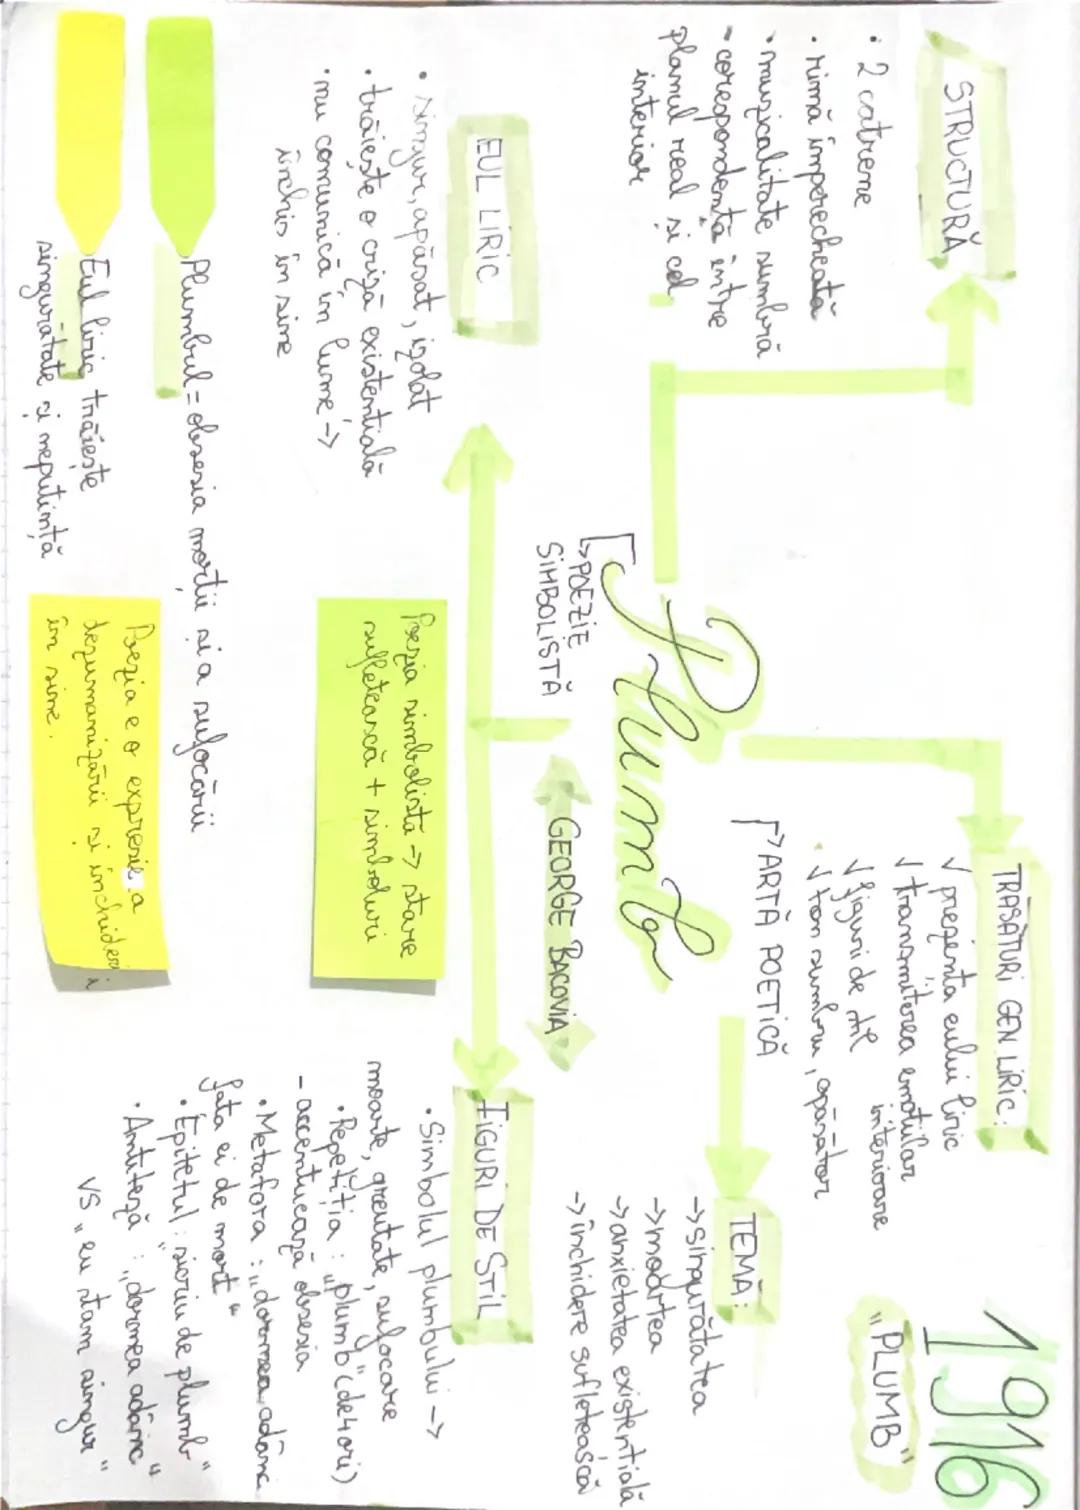 STRUCTURĂ
• 2 catrene
• rimă imperecheată
• muzicalitate sumbră
- corespondența între
planul real si cel
interior
TRĂSĂTURI GEN LIRIC:
√ prezența eului liric
√ transmiterea emoțiilor
interioare
√ figuri de stil
√ ton sumbru, apăsător
1916
"PLUMB"
→ ARTĂ POETICĂ
Plumb
→ POEZIE
SIMBOLISTĂ
GEORGE BACOVIA
TEMĂ:
→ singurătatea
→ moartea
→ anxietatea existențială
→ închidere sufletească
EUL LIRIC
• singur, apăsat, izolat
• trăiește o criză existențială
• nu comunică în lume →
închis în sine
Poezia simbolistă → stare
sufletească + simboluri
FIGURI DE STIL
• Simbolul plumbului →
moarte, greutate, sufocare
• Repetiția: „plumb" (de 4 ori)
- accentuează obsesia
• Metafora: „dormea adânc
fata ei de mort"
• Epitetul: „sicriu de plumb"
• Antiteză: „dormea adânc"
VS „eu stam singur"
Plumbul = obsesia morții și a sufocării
Eul liric trăiește
singurătate și neputință
Poezia e o expresie a
dezumanizării si închiderii
în sine.